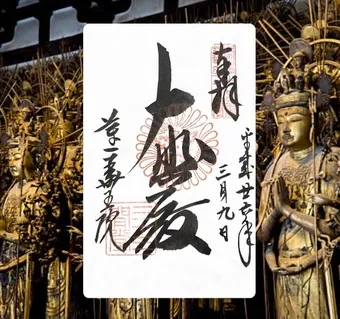 奉拝
平成廿六年
三月九日
大悲殿
蓮華王院